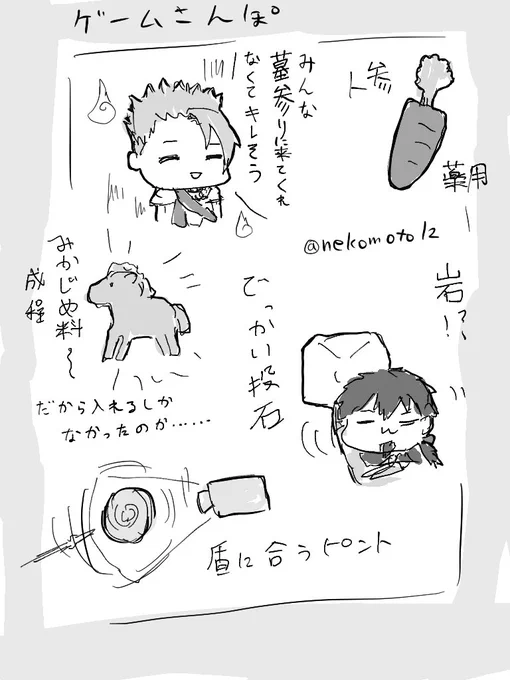 ゲームさんぽ
みんな
墓参りに来てくれ
なくてキレそう
人参
薬用
@nekomoto12
みかじめ料〜
成程
でっかい投石
岩!?
だから入れるしか
なかったのか……
盾に合うピント